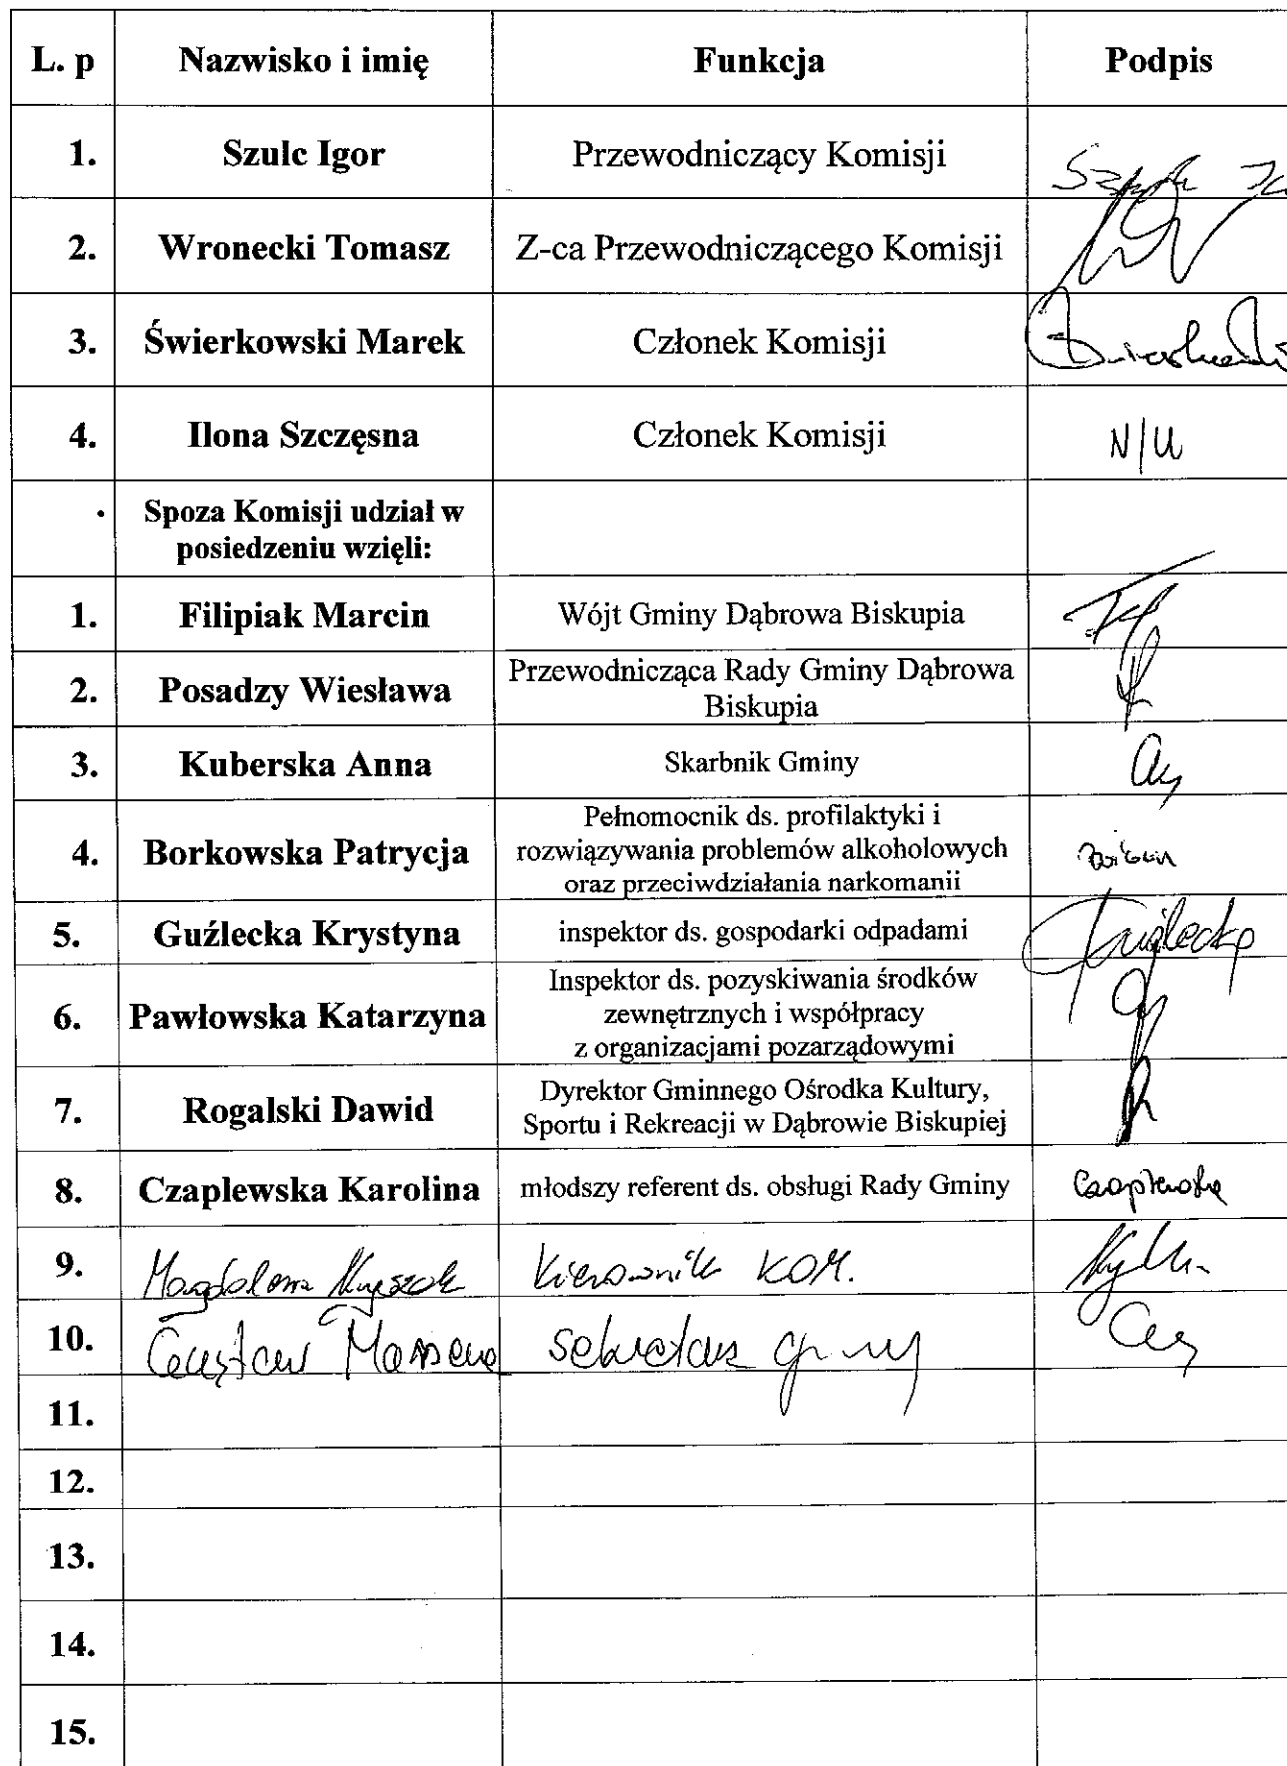 L. p Nazwisko i imię Funkcja Podpis
1. Szulc Igor Przewodniczący Komisji
2. Wronecki Tomasz Z-ca Przewodniczącego Komisji
3. Świerkowski Marek Członek Komisji
4. Ilona Szczęsna Członek Komisji N/U
Spoza Komisji udział w
posiedzeniu wzięli:
1. Filipiak Marcin Wójt Gminy Dąbrowa Biskupia
2. Posadzy Wiesława Przewodnicząca Rady Gminy Dąbrowa
Biskupia
3. Kuberska Anna Skarbnik Gminy
Pełnomocnik ds. profilaktyki i
4. Borkowska Patrycja rozwiązywania problemów alkoholowych
oraz przeciwdziałania narkomanii
5. Guźlecka Krystyna inspektor ds. gospodarki odpadami Guźlecka
Inspektor ds. pozyskiwania środków
6. Pawłowska Katarzyna zewnętrznych i współpracy
z organizacjami pozarządowymi
7. Rogalski Dawid Dyrektor Gminnego Ośrodka Kultury,
Sportu i Rekreacji w Dąbrowie Biskupiej
8. Czaplewska Karolina młodszy referent ds. obsługi Rady Gminy Czaplewska
9. Magdalena Kierownik KOM.
10. sekretarz gminy
11.
12.
13.
14.
15.